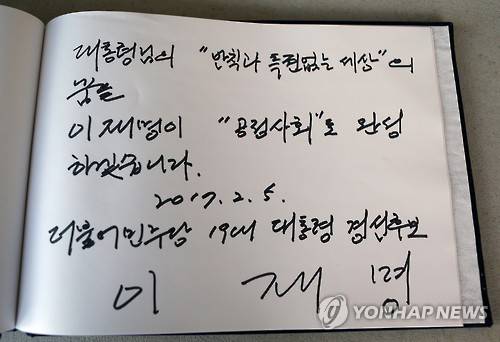 대통령님의 "반칙과 특권없는 세상"의
꿈을
이재명이 "공정사회"로 완성
하겠습니다.
2017. 2. 5.
더불어민주당 19대 대통령 경선후보
이 재 명
YONHAP NEWS